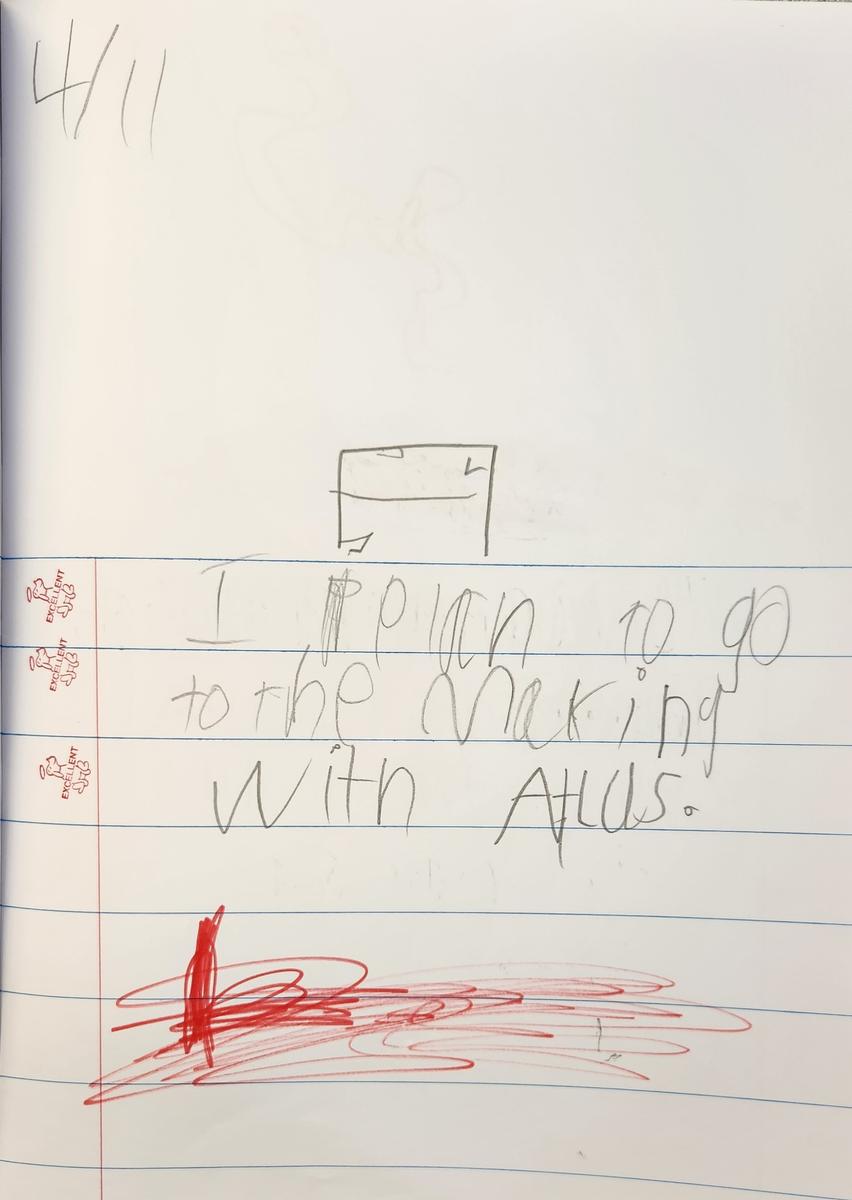 4/11
I plan to go
EXCELLENT
to the Making
EXCELLENT
with Atlas.
EXCELLENT